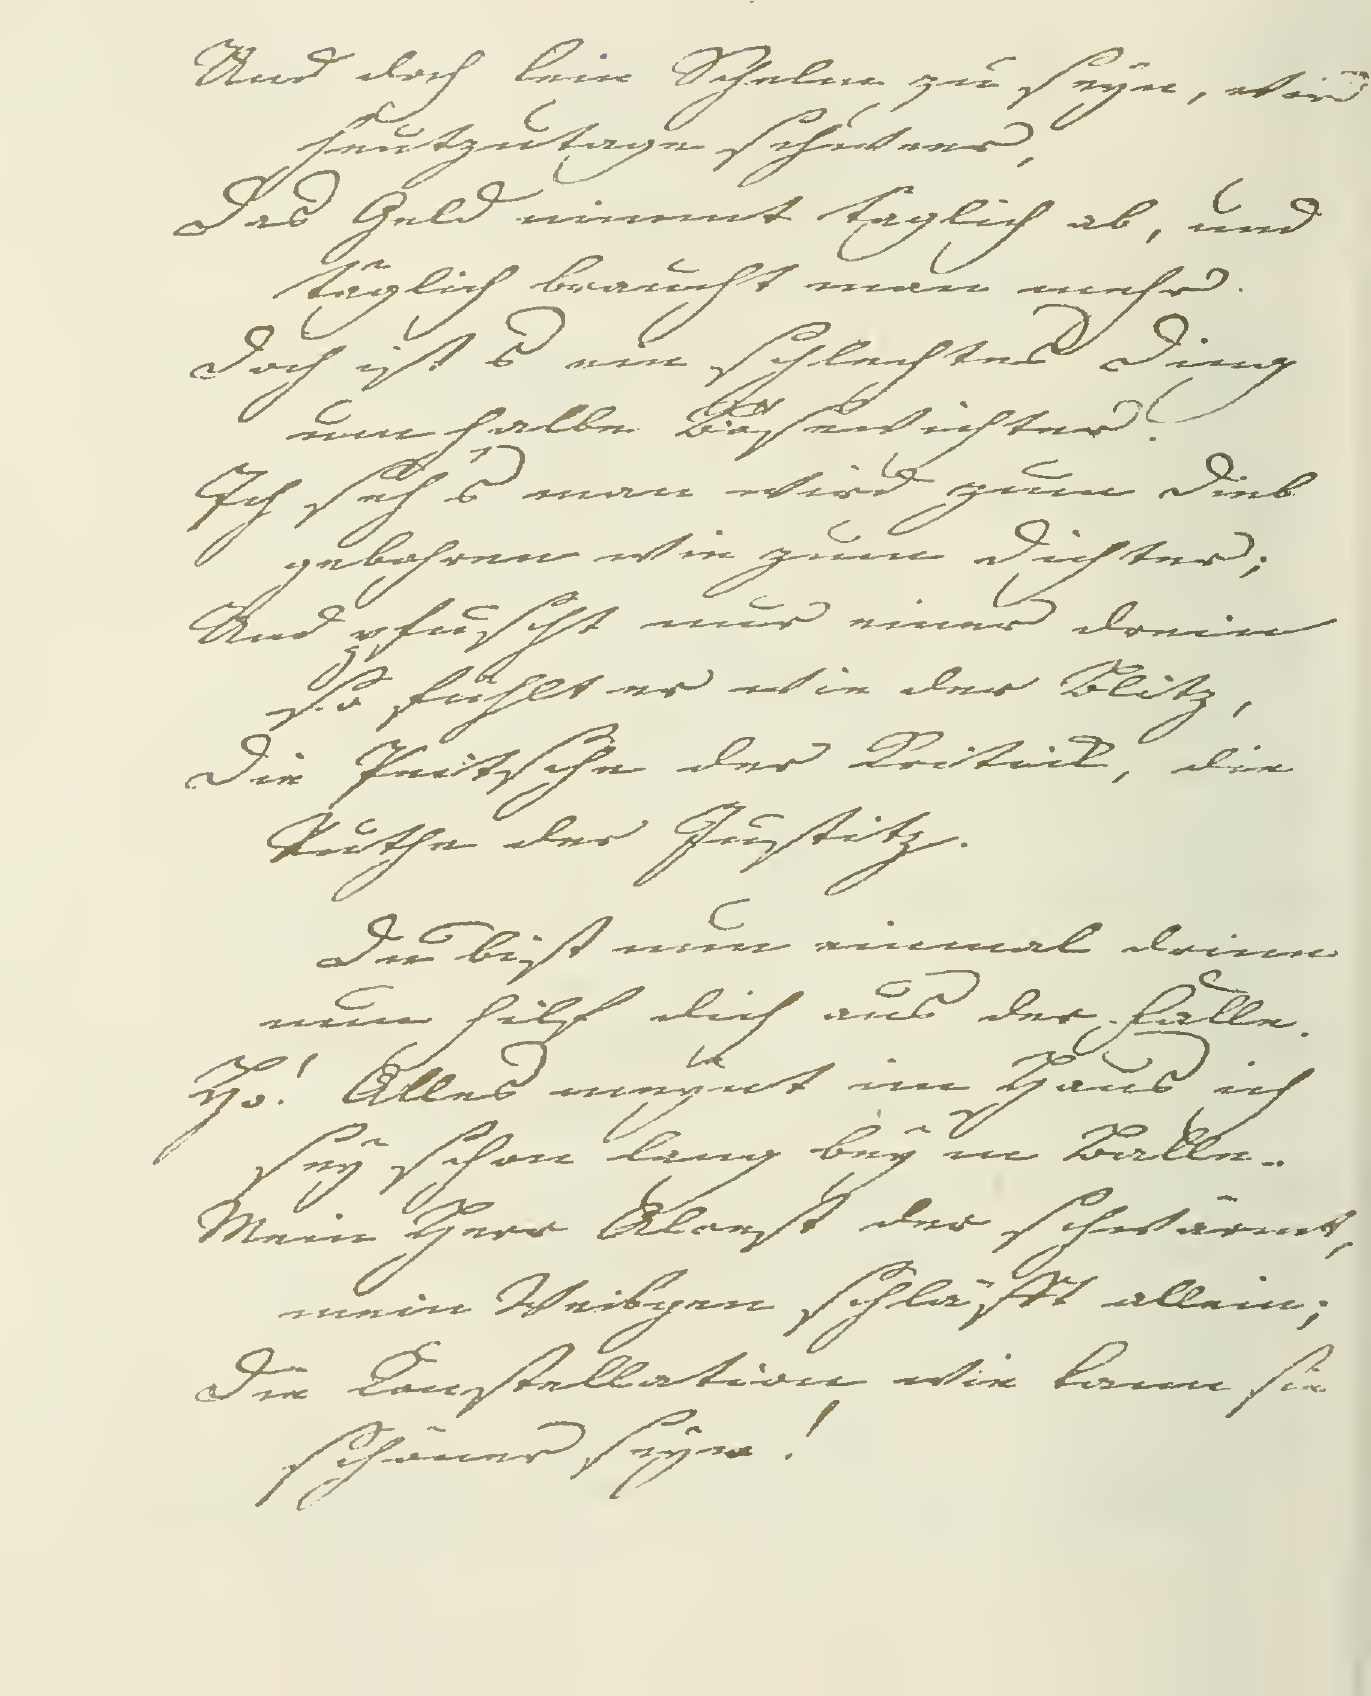 Und doch kein Schelm zu seyn, wird
heutzutage schweer,
Das Geld nimmt täglich ab, und
täglich braucht man mehr.
Doch ist's ein schlechtes Ding
um halbe Bösewichter.
Ich seh's man wird zum Dieb
gebohren wie zum Dichter;
Und pfuscht nur einer drein
so fühlt er wie der Blitz,
Die Peitsche der Kritick, die
Ruthe der Justitz.
Du bist nun einmal drinn
nun hilf dich aus der Falle.
Ho! Alles meynt im Haus ich
sey schon lang bey'm Balle.
Mein Herr Alcest der schwärmt,
mein Weibgen schläfft allein;
Die Constellation wie kann sie
schöner seyn!